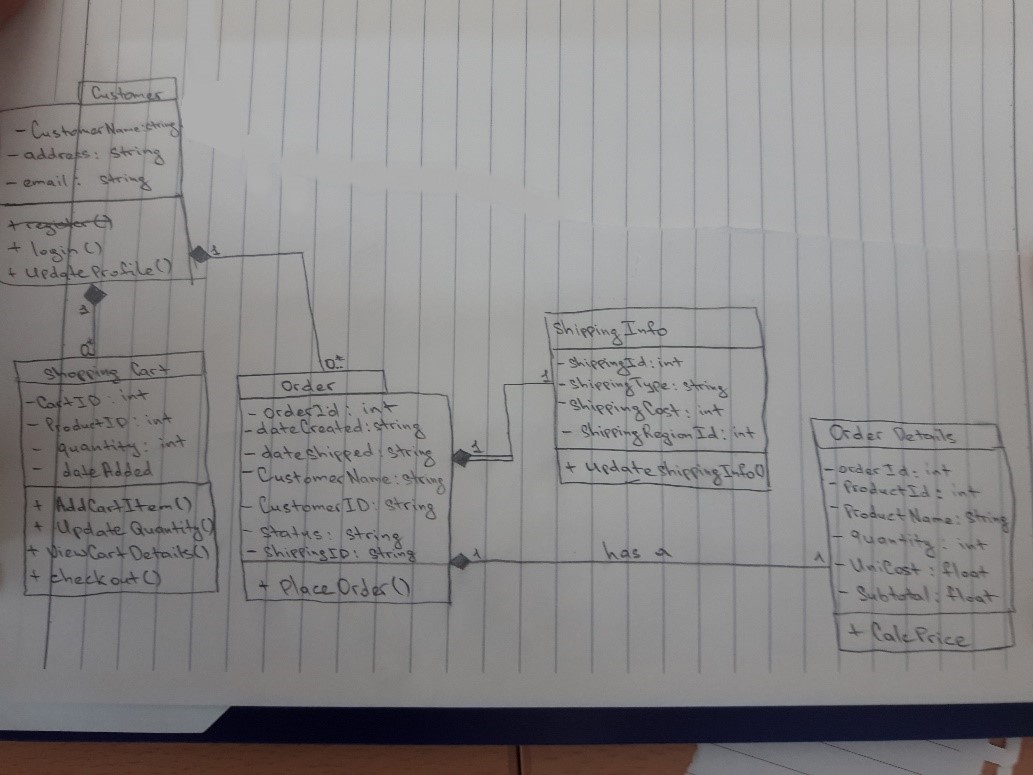 Customer
- CustomerName:string
- address: string
- email: string
+ register()
+ login()
+ UpdateProfile()
1
1
0*
0*
Shopping Cart
- CartID: int
- ProductID: int
- quantity: int
- dateAdded
+ AddCartItem()
+ UpdateQuantity()
+ ViewCartDetails()
+ checkout()
Order
- OrderId: int
- dateCreated:string
- dateshipped:string
- CustomerName:string
- CustomerID: string
- Status: string
- ShippingID: string
+ PlaceOrder()
1
1
ShippingInfo
- ShippingId:int
- ShippingType: string
- ShippingCost: int
- ShippingRegionId: int
+ UpdateShippingInfo()
1
has a
1
Order Details
- orderId: int
- ProductId: int
- ProductName: String
- quantity: int
- UniCost: float
- Subtotal: float
+ CalcPrice